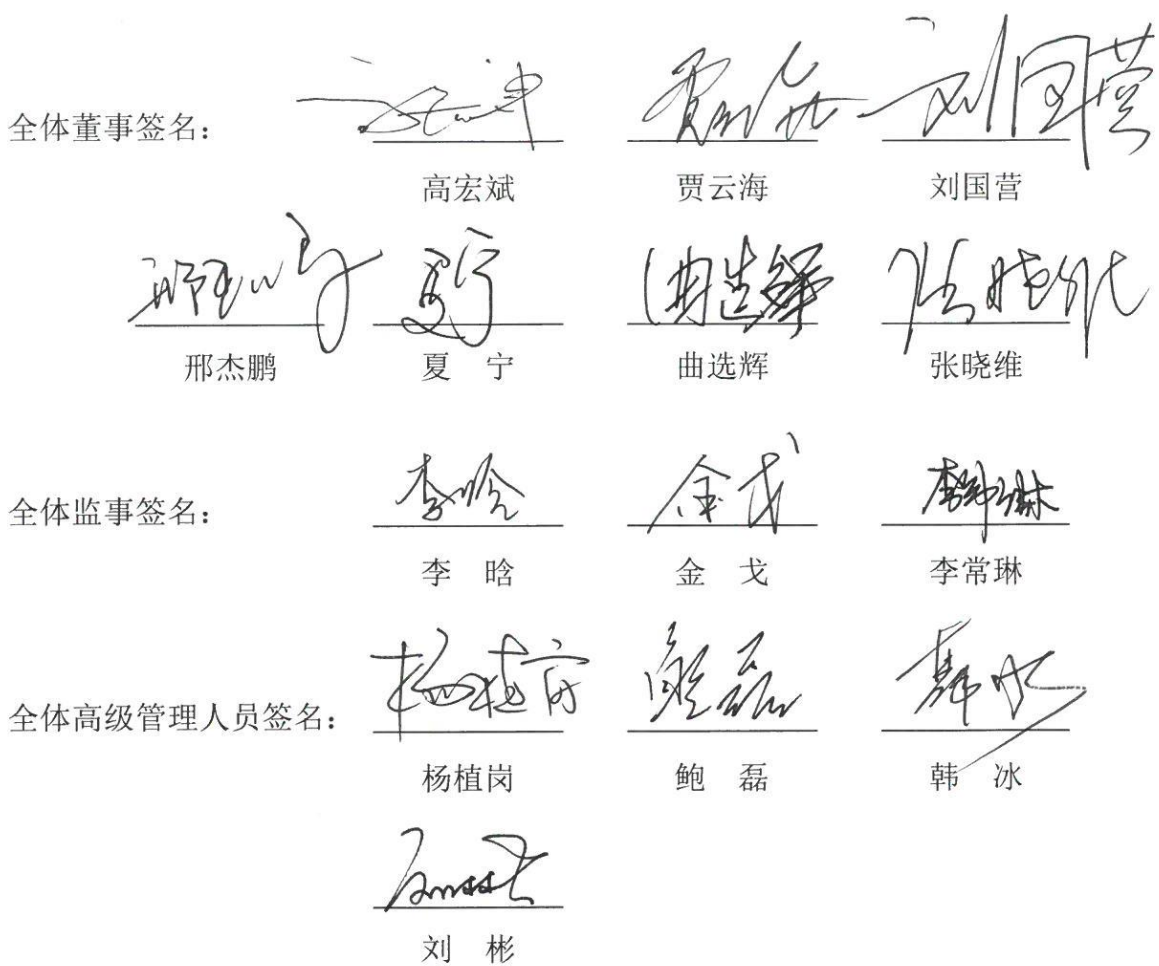 全体董事签名：
高宏斌 贾云海 刘国营
邢杰鹏 夏 宁 曲选辉 张晓维
全体监事签名：
李 晗 金 戈 李常琳
全体高级管理人员签名：
杨植岗 鲍 磊 韩 冰
刘 彬